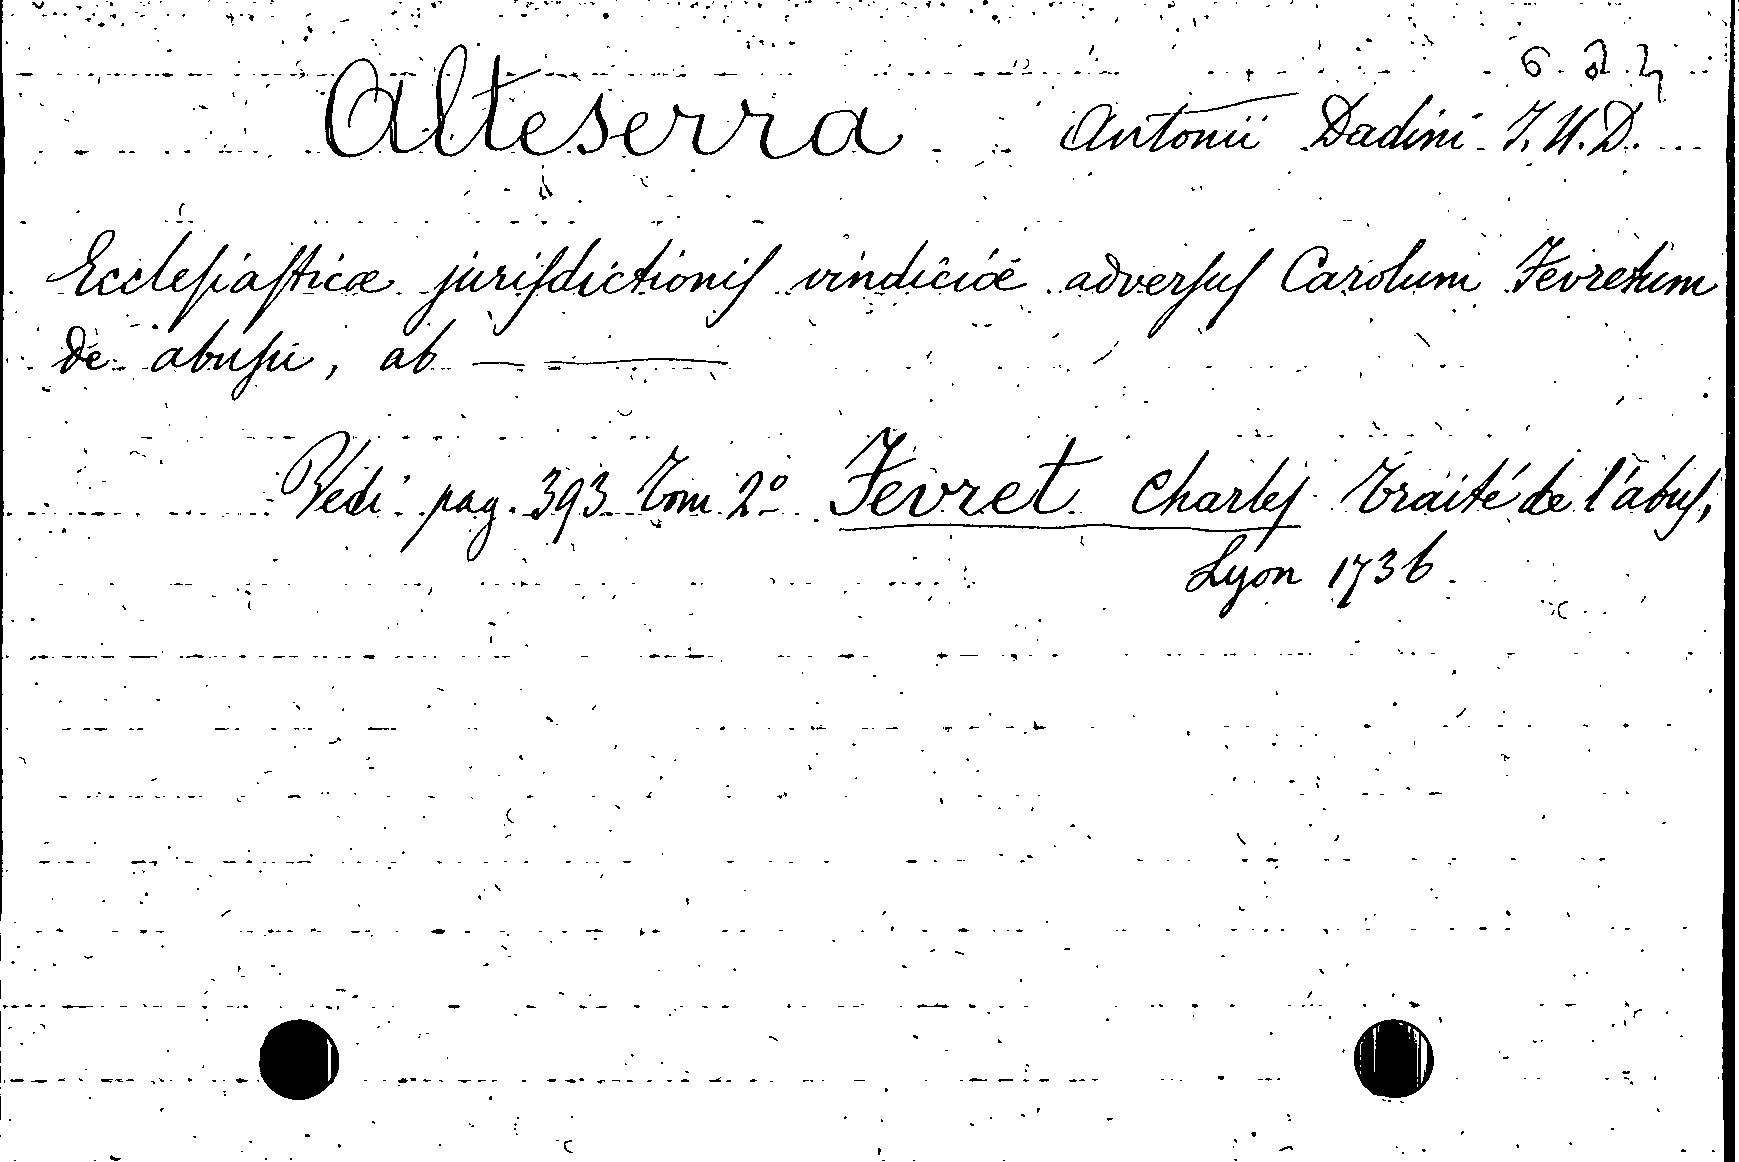 6. 2. 4
Alteserra Antonii Dadini J. U. D.
Ecclesiasticæ jurisdictionis vindiciæ adversus Carolum Fevretum
de abusu, ab — ———
Vedi pag. 393 Tom 2º Fevret Charles Traité de l'abus,
Lyon 1736.